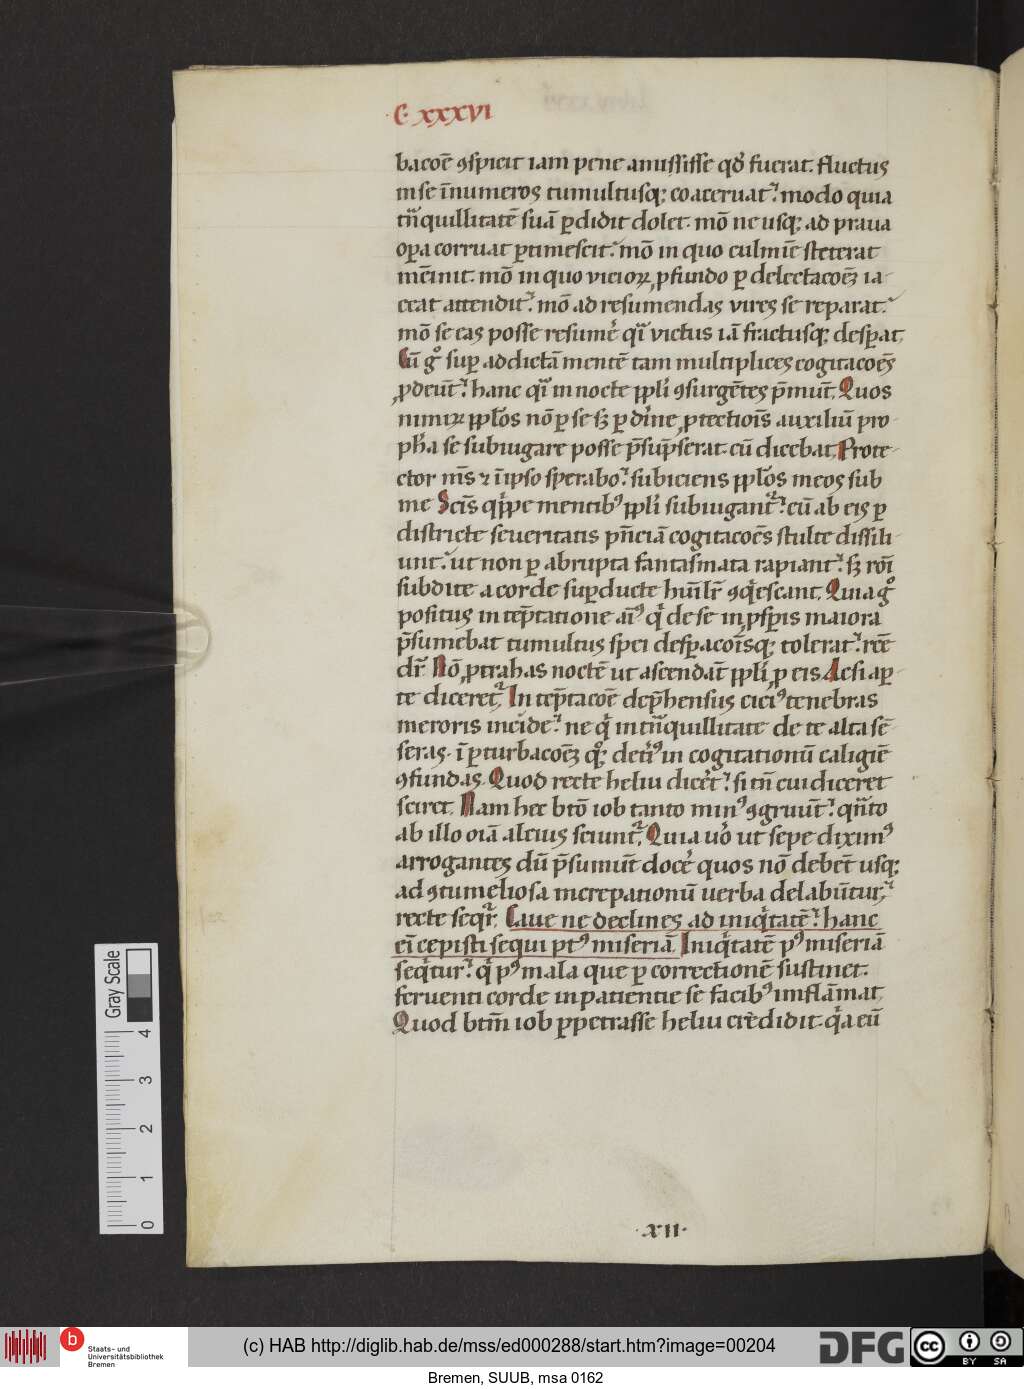 C. xxxvi
bacoē ꝯspicit iam pene amisisse qđ fuerat. fluctus
in se īnumeros tumultusqꝫ coaceruat. modo quia
tñquillitatē suā ꝑdidit dolet. mō ne usqꝫ ad praua
oꝑa corruat ꝑtimescit. mō in quo culmīe steterat
mēinit. mō in quo vicioꝝ ꝓfundo ꝑ delectacoēꝫ ia-
ceat attendit. mō ad resumendas vires se reparat.
mō se eas posse resumē qͣi victus iā fractusqꝫ desꝑat,
Cū gͦ suꝑ addictā mentē tam multiplices cogitacoēs
ꝓdeūt. hanc qͣi in nocte ppli ꝯsurgētes p̄mūt. Quos
nimiꝝ pplos nō ꝑ se sꝫ ꝑ diīne ꝓtectiōis auxiliū pro-
pha se subiugare posse p̄sūpserat. cū dicebat. Prote-
ctor mīs ⁊ ī ipso sperabo. subiciens pplos meos sub
me Scīs qͥppe mentibꝰ ppli subiugantᷣ. cū ab eis ꝑ
districte seueritatis pñciā cogitacoēs stulte dissili-
unt. ut non ꝑ abrupta fantasmata rapiant. sꝫ rōi
subdite a corde suꝑducte huīlr̄ ꝯqͥescant. Quia gͦ
positus in tēptatione aīꝰ qͥ de se in ꝓsꝑis maiora
p̄sumebat tumultus spei desꝑacoīsqꝫ tolerat. rcē
dr̄. Nō ꝓtrahas noctē ut ascendāt ppli ꝓ eis Acsi aꝑ-
te diceretᷣ. In tēptacoē dep̄hensus ciciꝰ tenebras
meroris incide. ne qͥ in tñquillitate de te alta sē-
seras. ī ꝑturbacoēꝫ qͦqꝫ detiꝰ in cogitationū caligiē
ꝯfundas. Quod recte heliu dicet. si tn̄ cui diceret
sciret. Nam hec bt̄o iob tanto minꝰ ꝯgruūt. qñto
ab illo oīa alcius sciuntᷣ. Quia uo ut sepe diximꝰ
arrogantes dū p̄sumūt docē quos nō debēt usqꝫ
ad ꝯtumeliosa increpationū uerba delabūtur.
recte seqͥr. Caue ne declines ad iniqͥtatē. hanc
eī cepisti sequi ptꝰ miseriā. Iniqͥtatē pꝰ miseriā
seqͥtur. qͥ pꝰ mala que ꝑ correctionē sustinet.
feruenti corde inpatientie se facibꝰ inflāmat.
Quod btm̄ iob ꝑpetrasse heliu crēdidit. qͥa eū
·xii·
Gray Scale
4
3
2
1
0
b
Staats- und
Universitätsbibliothek
Bremen
(c) HAB http://diglib.hab.de/mss/ed000288/start.htm?image=00204
DFG
cc
BY SA
Bremen, SUUB, msa 0162